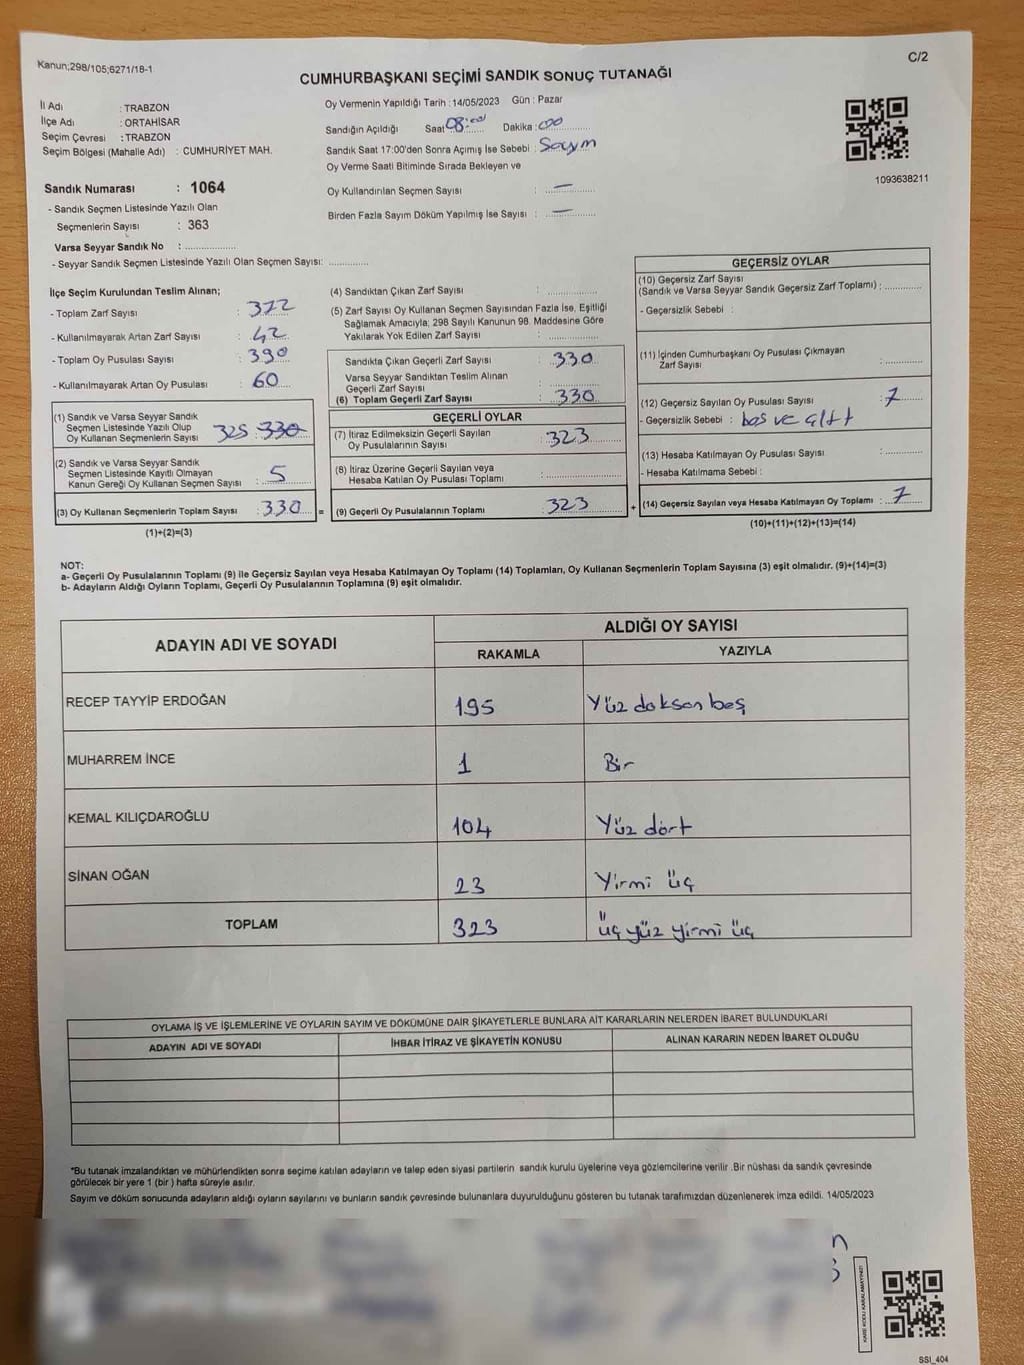 Kanun;298/105;6271/18-1
C/2
CUMHURBAŞKANI SEÇİMİ SANDIK SONUÇ TUTANAĞI
İl Adı : TRABZON
İlçe Adı : ORTAHİSAR
Seçim Çevresi : TRABZON
Seçim Bölgesi (Mahalle Adı) : CUMHURİYET MAH.
Sandık Numarası : 1064
- Sandık Seçmen Listesinde Yazılı Olan
Seçmenlerin Sayısı : 363
Varsa Seyyar Sandık No : ...............
- Seyyar Sandık Seçmen Listesinde Yazılı Olan Seçmen Sayısı: ............
Oy Vermenin Yapıldığı Tarih : 14/05/2023 Gün : Pazar
Sandığın Açıldığı Saat 08:00 Dakika : 00
Sandık Saat 17:00'den Sonra Açımış İse Sebebi : Sayım
Oy Verme Saati Bitiminde Sırada Bekleyen ve
Oy Kullandırılan Seçmen Sayısı : —
Birden Fazla Sayım Döküm Yapılmış İse Sayısı : —
1093638211
İlçe Seçim Kurulundan Teslim Alınan;
- Toplam Zarf Sayısı : 372
- Kullanılmayarak Artan Zarf Sayısı : 42
- Toplam Oy Pusulası Sayısı : 390
- Kullanılmayarak Artan Oy Pusulası : 60
(1) Sandık ve Varsa Seyyar Sandık
Seçmen Listesinde Yazılı Olup
Oy Kullanan Seçmenlerin Sayısı 325 : 330
(2) Sandık ve Varsa Seyyar Sandık
Seçmen Listesinde Kayıtlı Olmayan
Kanun Gereği Oy Kullanan Seçmen Sayısı : 5
(3) Oy Kullanan Seçmenlerin Toplam Sayısı : 330
(1)+(2)=(3)
(4) Sandıktan Çıkan Zarf Sayısı : ............
(5) Zarf Sayısı Oy Kullanan Seçmen Sayısından Fazla İse, Eşitliği
Sağlamak Amacıyla; 298 Sayılı Kanunun 98. Maddesine Göre
Yakılarak Yok Edilen Zarf Sayısı : ............
Sandıkta Çıkan Geçerli Zarf Sayısı : 330
Varsa Seyyar Sandıktan Teslim Alınan
Geçerli Zarf Sayısı : ............
(6) Toplam Geçerli Zarf Sayısı : 330
GEÇERLİ OYLAR
(7) İtiraz Edilmeksizin Geçerli Sayılan
Oy Pusulalarının Sayısı : 323
(8) İtiraz Üzerine Geçerli Sayılan veya
Hesaba Katılan Oy Pusulası Toplamı : ............
= (9) Geçerli Oy Pusulalarının Toplamı : 323
GEÇERSİZ OYLAR
(10) Geçersiz Zarf Sayısı
(Sandık ve Varsa Seyyar Sandık Geçersiz Zarf Toplamı) : ............
- Geçersizlik Sebebi :
(11) İçinden Cumhurbaşkanı Oy Pusulası Çıkmayan
Zarf Sayısı : ............
(12) Geçersiz Sayılan Oy Pusulası Sayısı : 7
- Geçersizlik Sebebi : boş ve çift
(13) Hesaba Katılmayan Oy Pusulası Sayısı : ............
- Hesaba Katılmama Sebebi :
+ (14) Geçersiz Sayılan veya Hesaba Katılmayan Oy Toplamı : 7
(10)+(11)+(12)+(13)=(14)
NOT:
a- Geçerli Oy Pusulalarının Toplamı (9) ile Geçersiz Sayılan veya Hesaba Katılmayan Oy Toplamı (14) Toplamları, Oy Kullanan Seçmenlerin Toplam Sayısına (3) eşit olmalıdır. (9)+(14)=(3)
b- Adayların Aldığı Oyların Toplamı, Geçerli Oy Pusulalarının Toplamına (9) eşit olmalıdır.
ADAYIN ADI VE SOYADI
ALDIĞI OY SAYISI
RAKAMLA YAZIYLA
RECEP TAYYİP ERDOĞAN 195 Yüz doksan beş
MUHARREM İNCE 1 Bir
KEMAL KILIÇDAROĞLU 104 Yüz dört
SİNAN OĞAN 23 Yirmi üç
TOPLAM 323 üç yüz yirmi üç
OYLAMA İŞ VE İŞLEMLERİNE VE OYLARIN SAYIM VE DÖKÜMÜNE DAİR ŞİKAYETLERLE BUNLARA AİT KARARLARIN NELERDEN İBARET BULUNDUKLARI
ADAYIN ADI VE SOYADI İHBAR İTİRAZ VE ŞİKAYETİN KONUSU ALINAN KARARIN NEDEN İBARET OLDUĞU
*Bu tutanak imzalandıktan ve mühürlendikten sonra seçime katılan adayların ve talep eden siyasi partilerin sandık kurulu üyelerine veya gözlemcilerine verilir .Bir nüshası da sandık çevresinde
görülecek bir yere 1 (bir ) hafta süreyle asılır.
Sayım ve döküm sonucunda adayların aldığı oyların sayılarını ve bunların sandık çevresinde bulunanlara duyurulduğunu gösteren bu tutanak tarafımızdan düzenlenerek imza edildi. 14/05/2023
KARE KODU KARALAMAYINIZ!
SSI_404